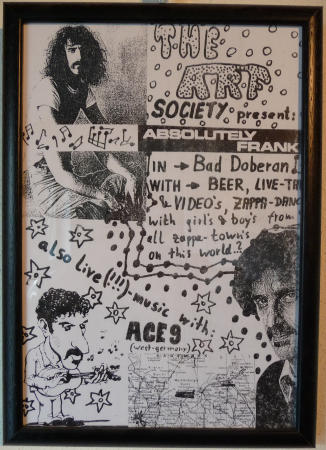 THE
ARF
SOCIETY present:
ABSOLUTELY
FRANK
IN → Bad Doberan
WITH → BEER, LIVE-TA
& VIDEO's, ZAPPA-DANC
with girl's & boy's from
all zappa-town's
on this world..?
also live (!!!)-music with:
ACE 9
(west-germany)